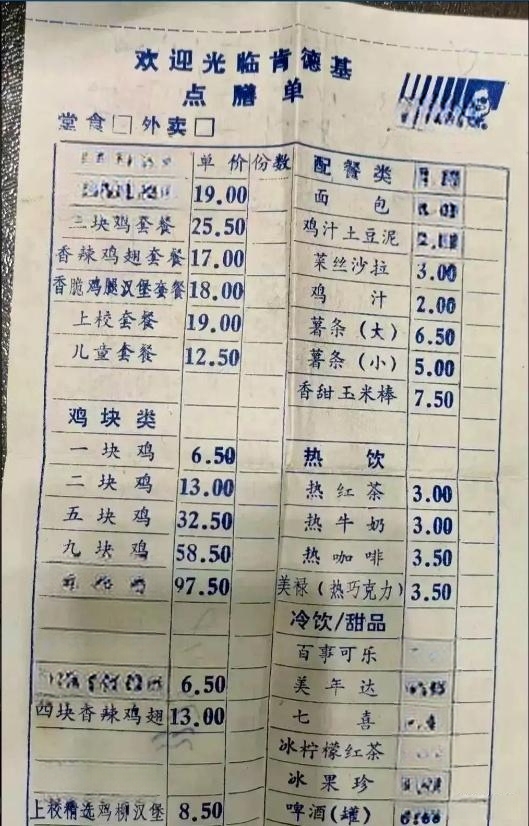 欢迎光临肯德基
点膳单
堂食□ 外卖□
单价 份数
19.00
三块鸡套餐 25.50
香辣鸡翅套餐 17.00
香脆鸡腿汉堡套餐 18.00
上校套餐 19.00
儿童套餐 12.50
鸡块类
一块鸡 6.50
二块鸡 13.00
五块鸡 32.50
九块鸡 58.50
97.50
6.50
四块香辣鸡翅 13.00
上校精选鸡柳汉堡 8.50
配餐类
面包
鸡汁土豆泥
菜丝沙拉 3.00
鸡汁 2.00
薯条(大) 6.50
薯条(小) 5.00
香甜玉米棒 7.50
热饮
热红茶 3.00
热牛奶 3.00
热咖啡 3.50
美禄(热巧克力) 3.50
冷饮/甜品
百事可乐
美年达
七喜
冰柠檬红茶
冰果珍
啤酒(罐)